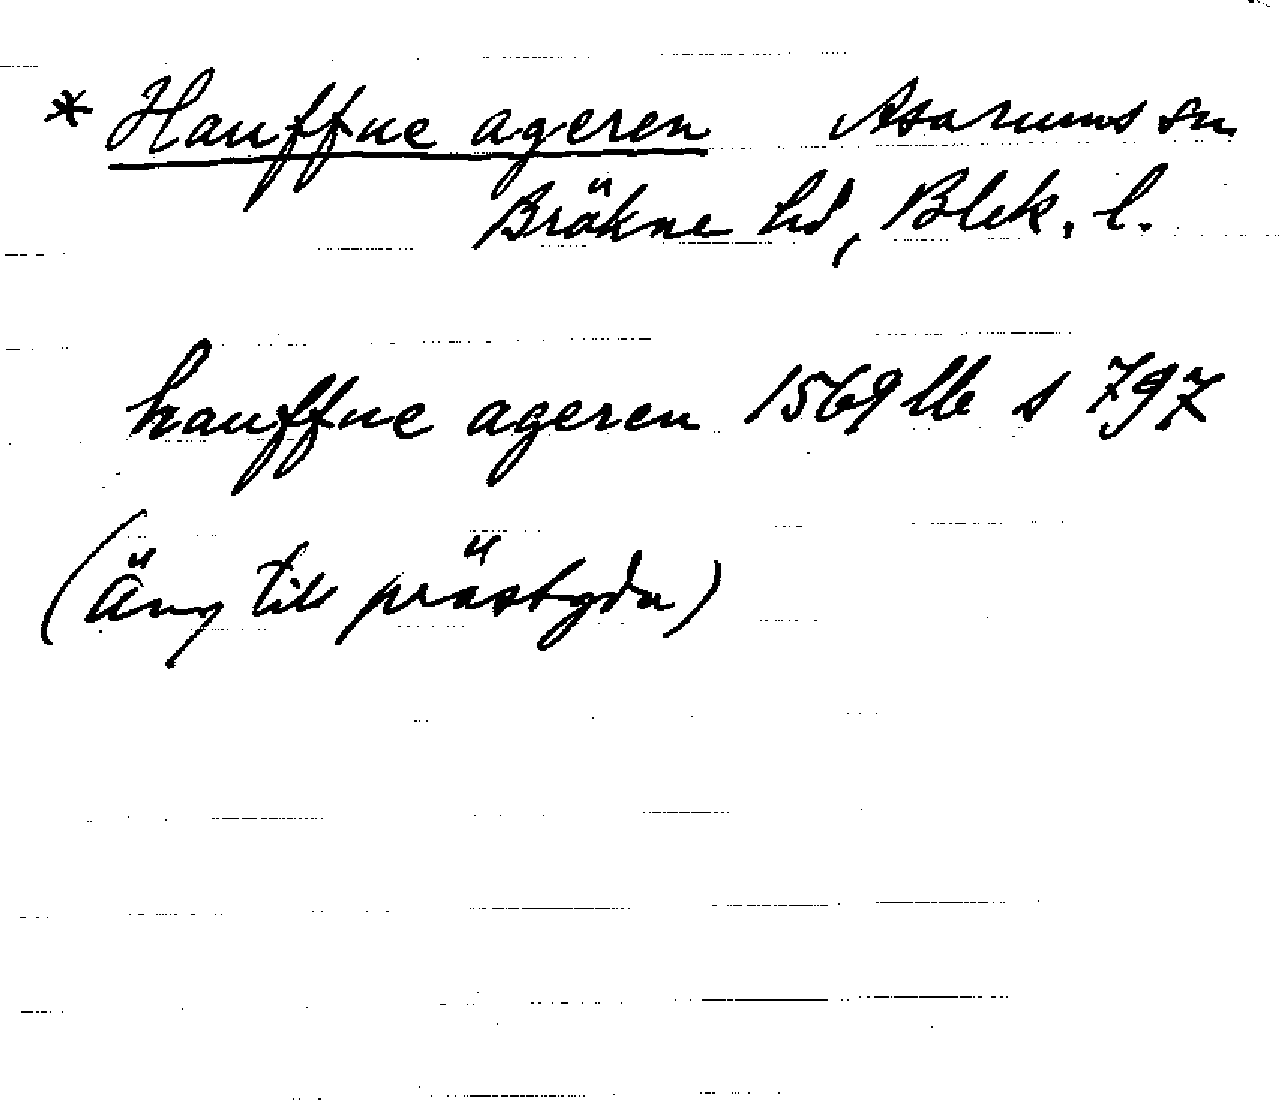 * Hauffue ageren Asarums sn
Bräkne hd, Blek. l.
hauffue ageren 1569 llb s 797
(Äng till prästgdn)